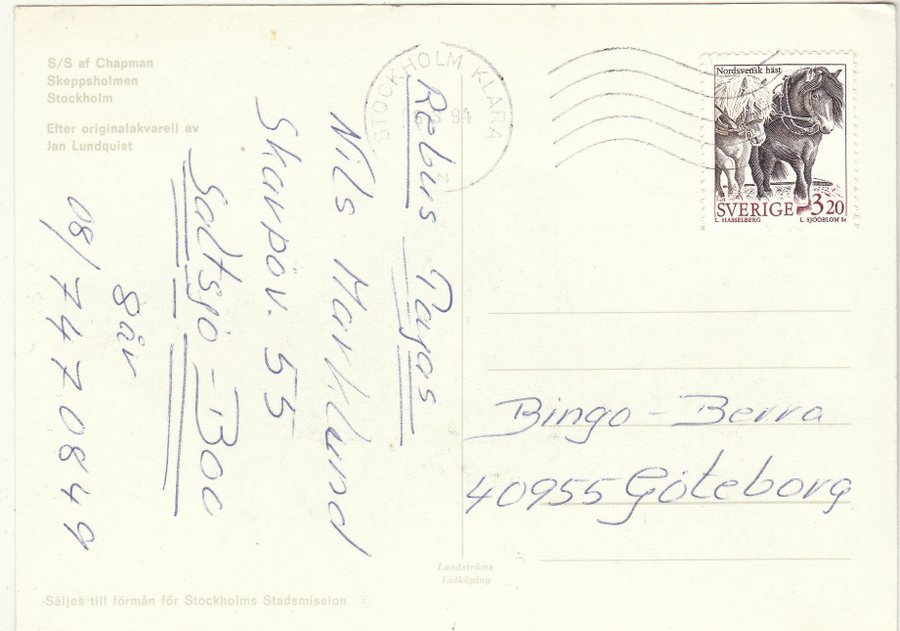 S/S af Chapman
Skeppsholmen
Stockholm
Efter originalakvarell av
Jan Lundquist
STOCKHOLM KLARA
94
Nordsvensk häst
SVERIGE 3 20
L. HASSELBERG L. SJÖÖBLOM Sc
Rebus Tajas
Nils Marklund
Skarpöv. 55
Saltsjö-Boo
8 år
08/7470849
Bingo-Berra
40955 Göteborg
Landströms
Lidköping
Säljes till förmån för Stockholms Stadsmission